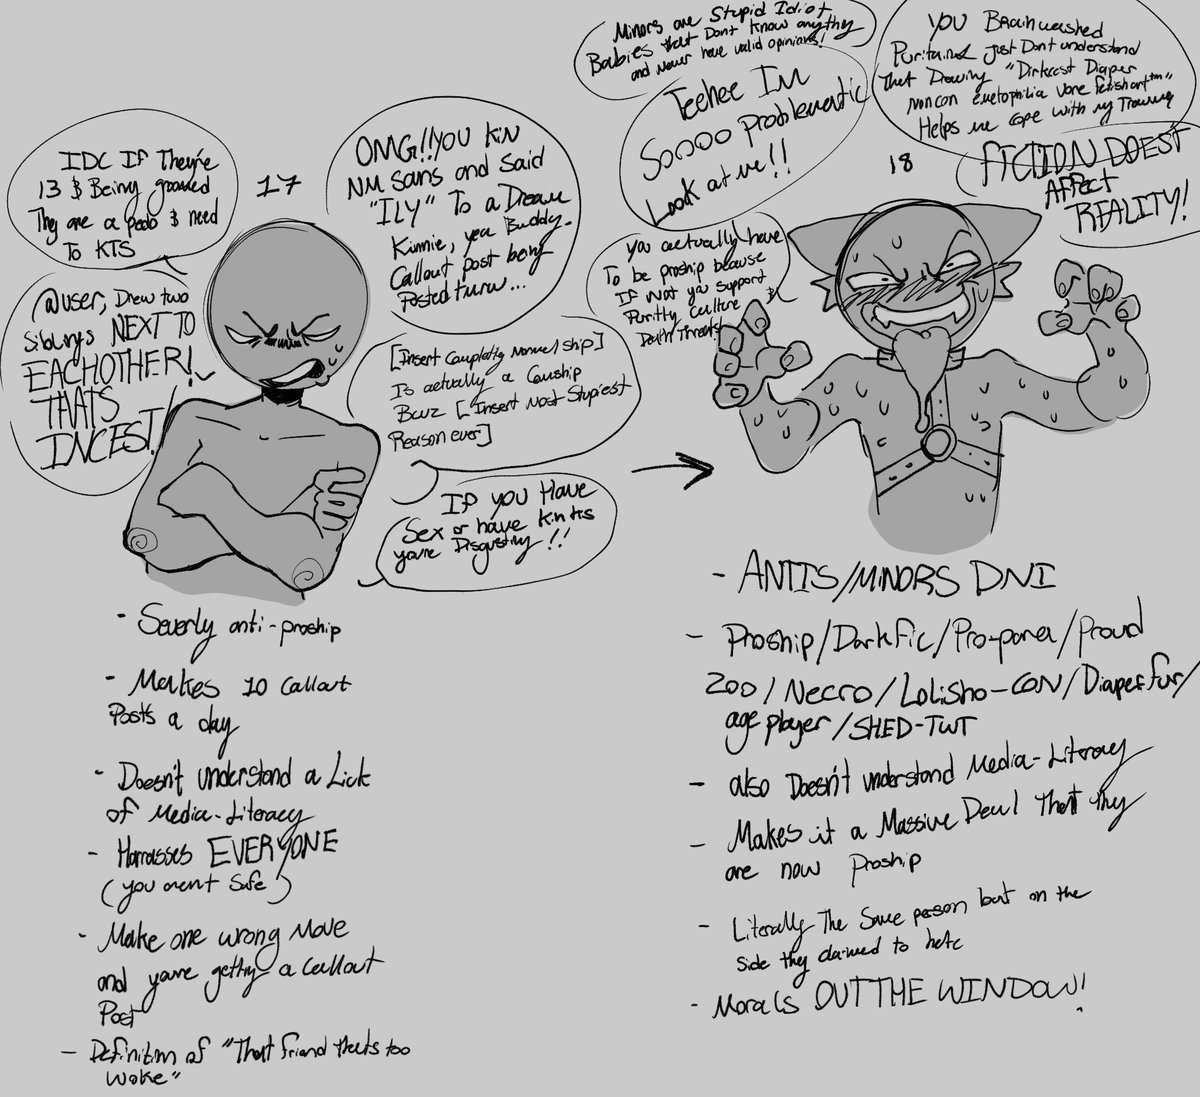 IDC If They're
13 & Being groomed
They are a pedo & need
To KTS
17
OMG!!YOU KiN
NM Sans and Said
"ILY" To a Dream
Kinnie, yea Buddy-
Callout post being
Posted turw...
@user, Drew two
Siblings NEXT TO
EACHOTHER!
THATS
INCEST!
[Insert Completly Normal Ship]
Is actually a Comship
Becuz [Insert Most Stupiest
Reason ever]
IF you Have
Sex or have Kinks
you're Disgusting!!
- Severly anti-proship
- Makes 10 Callout
Posts a day
- Doesn't understand a Lick
of Media-Literacy
- Harrasses EVERYONE
(you arent Safe)
- Make one wrong Move
and youre getting a Callout
Post
- Definition of "That friend thats too
woke"
Minors are Stupid Idiot
Babies that Dont Know anything
and Never have valid opinions!
Teehee Im
Soooo Problematic
Look at me!!
YOU Brainwashed
Puritains Just Dont understand
That Drawing "Dirkcest Diaper
noncon emetophilia vore fetishart™"
Helps me cope with my Trauma
18
FICTION DOEST
AFFECT
REALITY!
You actually have
To be proship because
If Not you support
Puritty Culture
& Death Threats!
- ANTIS/MINORS DNI
- Proship/DarkFic/Pro-para/Proud
Zoo/Necro/Lolisho-CON/Diaperfur/
age player/SHED-TWT
- also Doesn't understand Media-Literacy
- Makes it a Massive Deal That they
are now Proship
- Literally The Same person but on the
side they claimed to hate
- Morals OUT THE WINDOW!